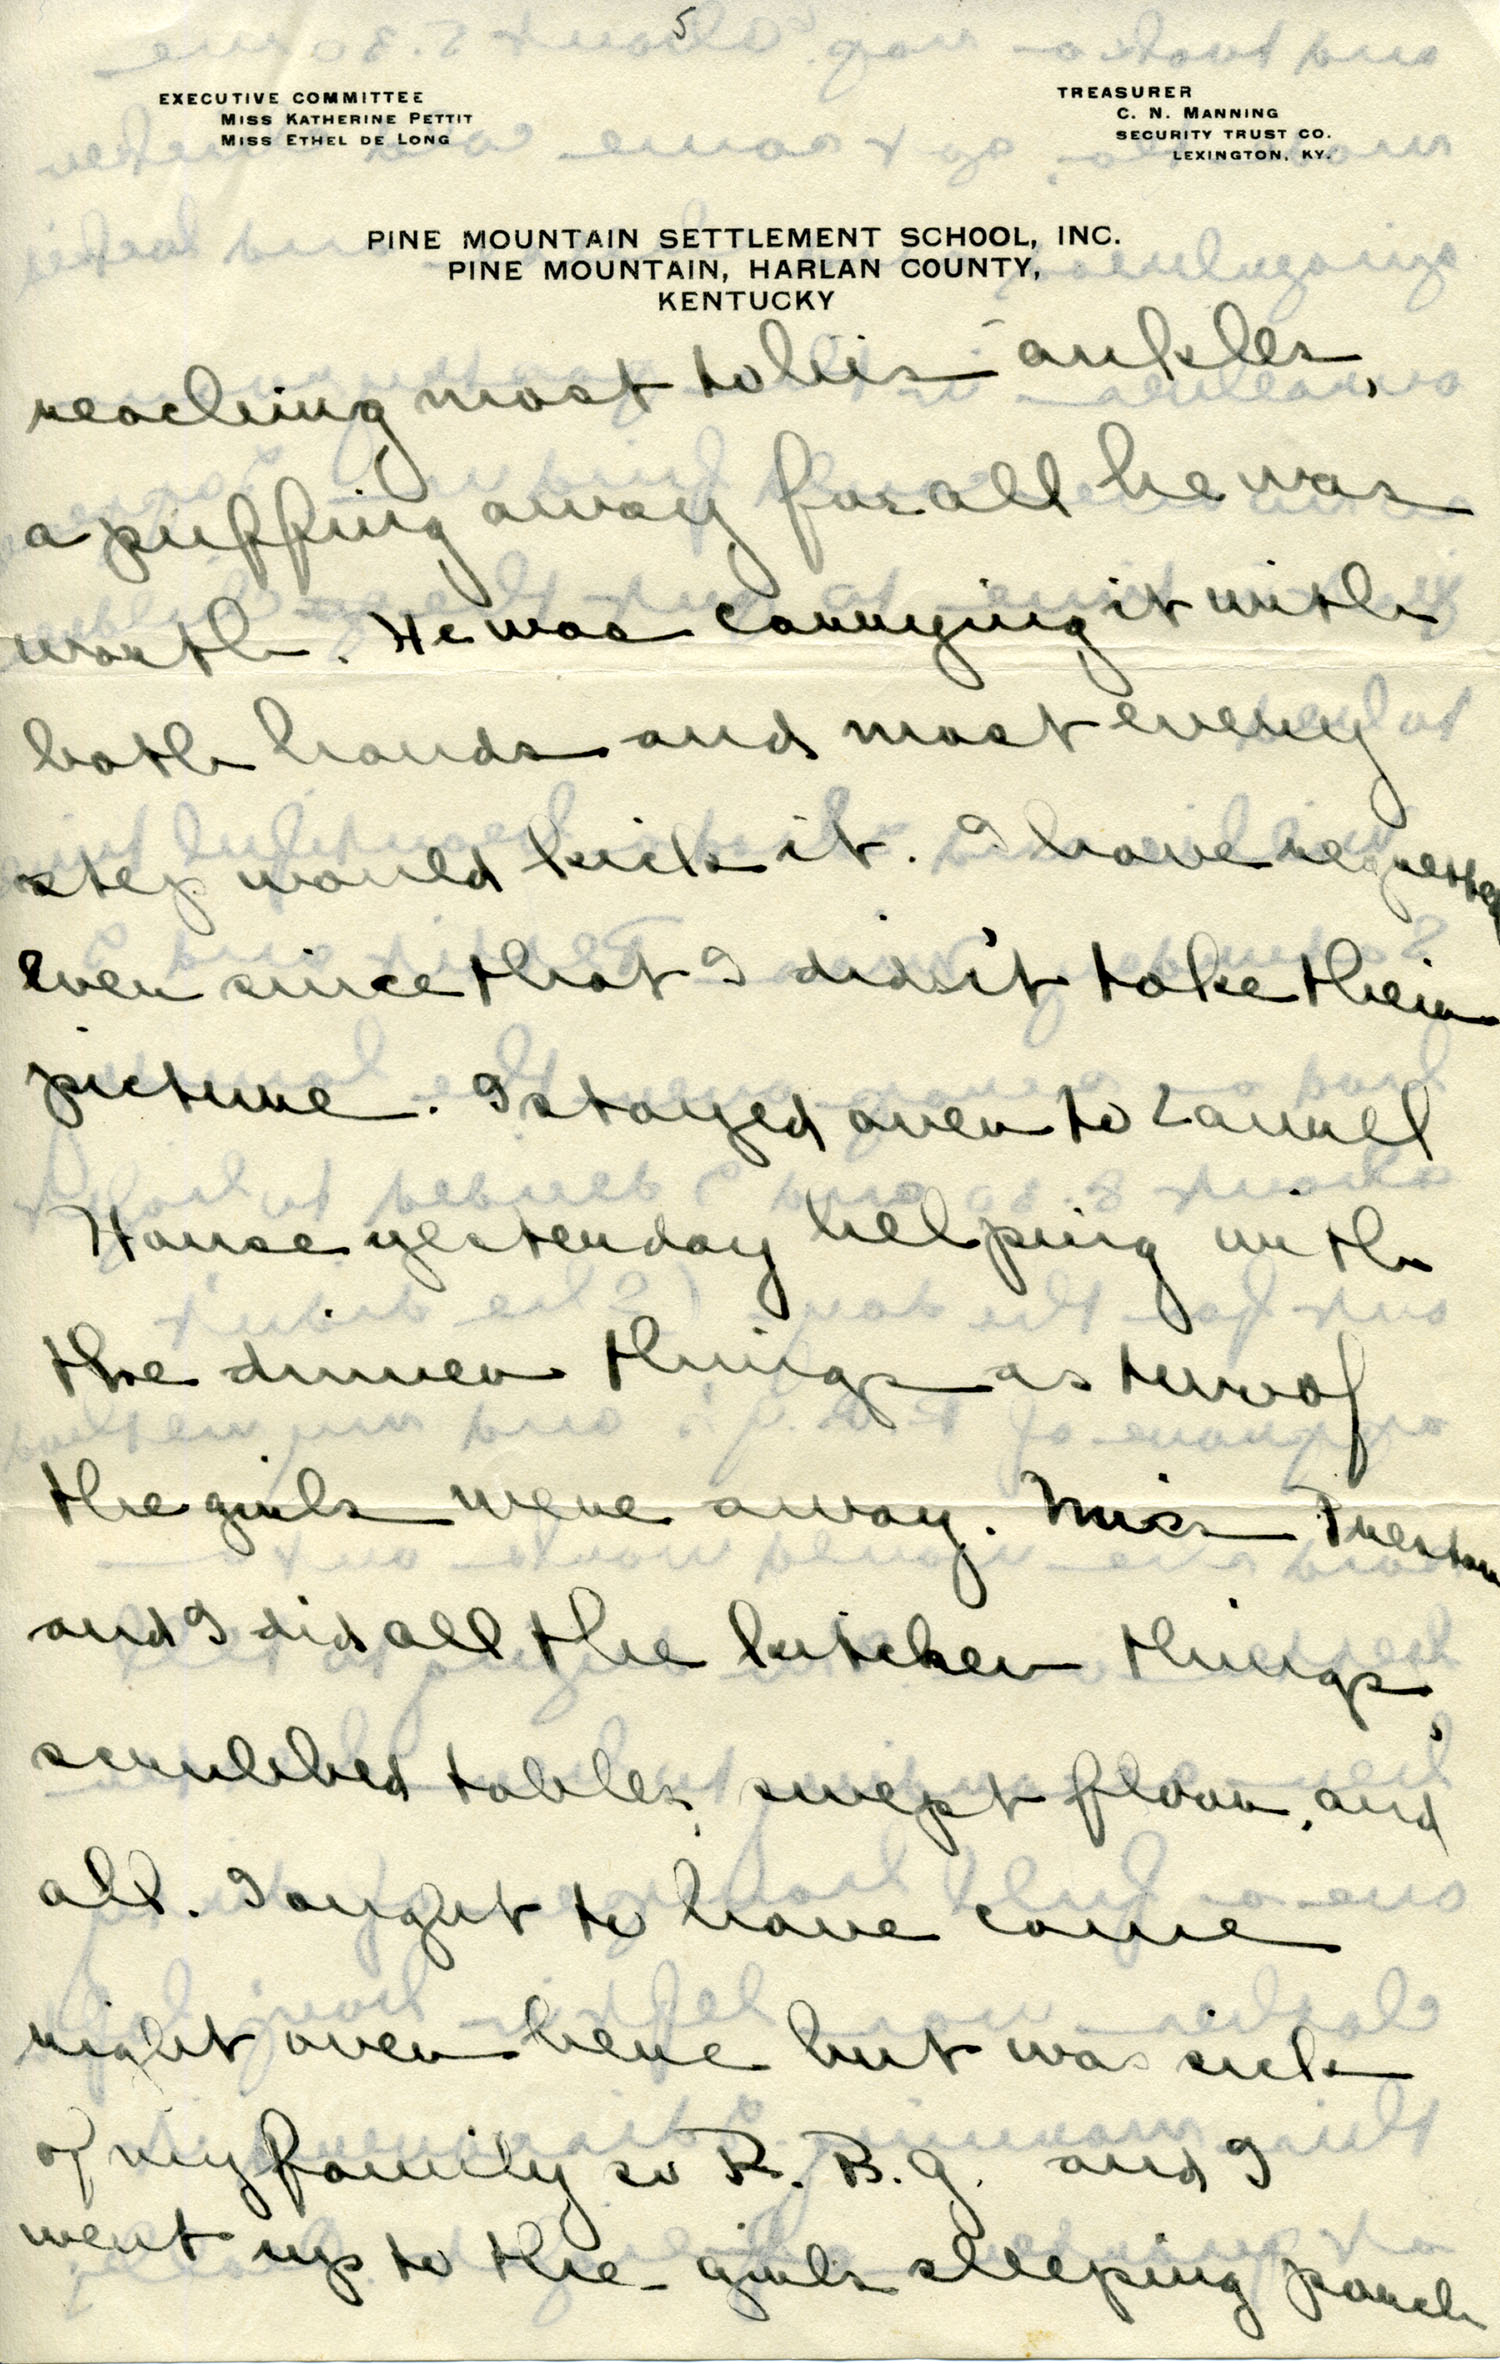 5
EXECUTIVE COMMITTEE
MISS KATHERINE PETTIT
MISS ETHEL DE LONG
TREASURER
C. N. MANNING
SECURITY TRUST CO.
LEXINGTON, KY.
PINE MOUNTAIN SETTLEMENT SCHOOL, INC.
PINE MOUNTAIN, HARLAN COUNTY,
KENTUCKY
reaching most to his ankles,
a puffing away for all he was
worth. He was carrying it with
both hands and most every
step would kick it. I have regretted
ever since that I didn't take their
picture. I stayed over to Laurel
House yesterday helping with
the dinner things as two of
the girls were away. Miss
and I did all the kitchen things,
scrubbed tables, swept floor, and
all. I ought to have come
right over here but was sick
of my family so R. B. G. and I
went up to the girls sleeping porch